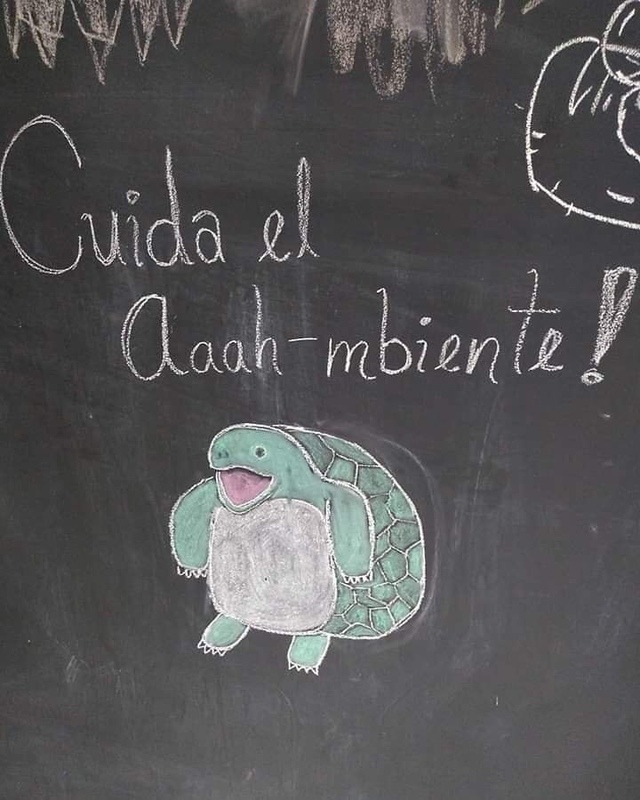 Cuida el
Aaah-mbiente!